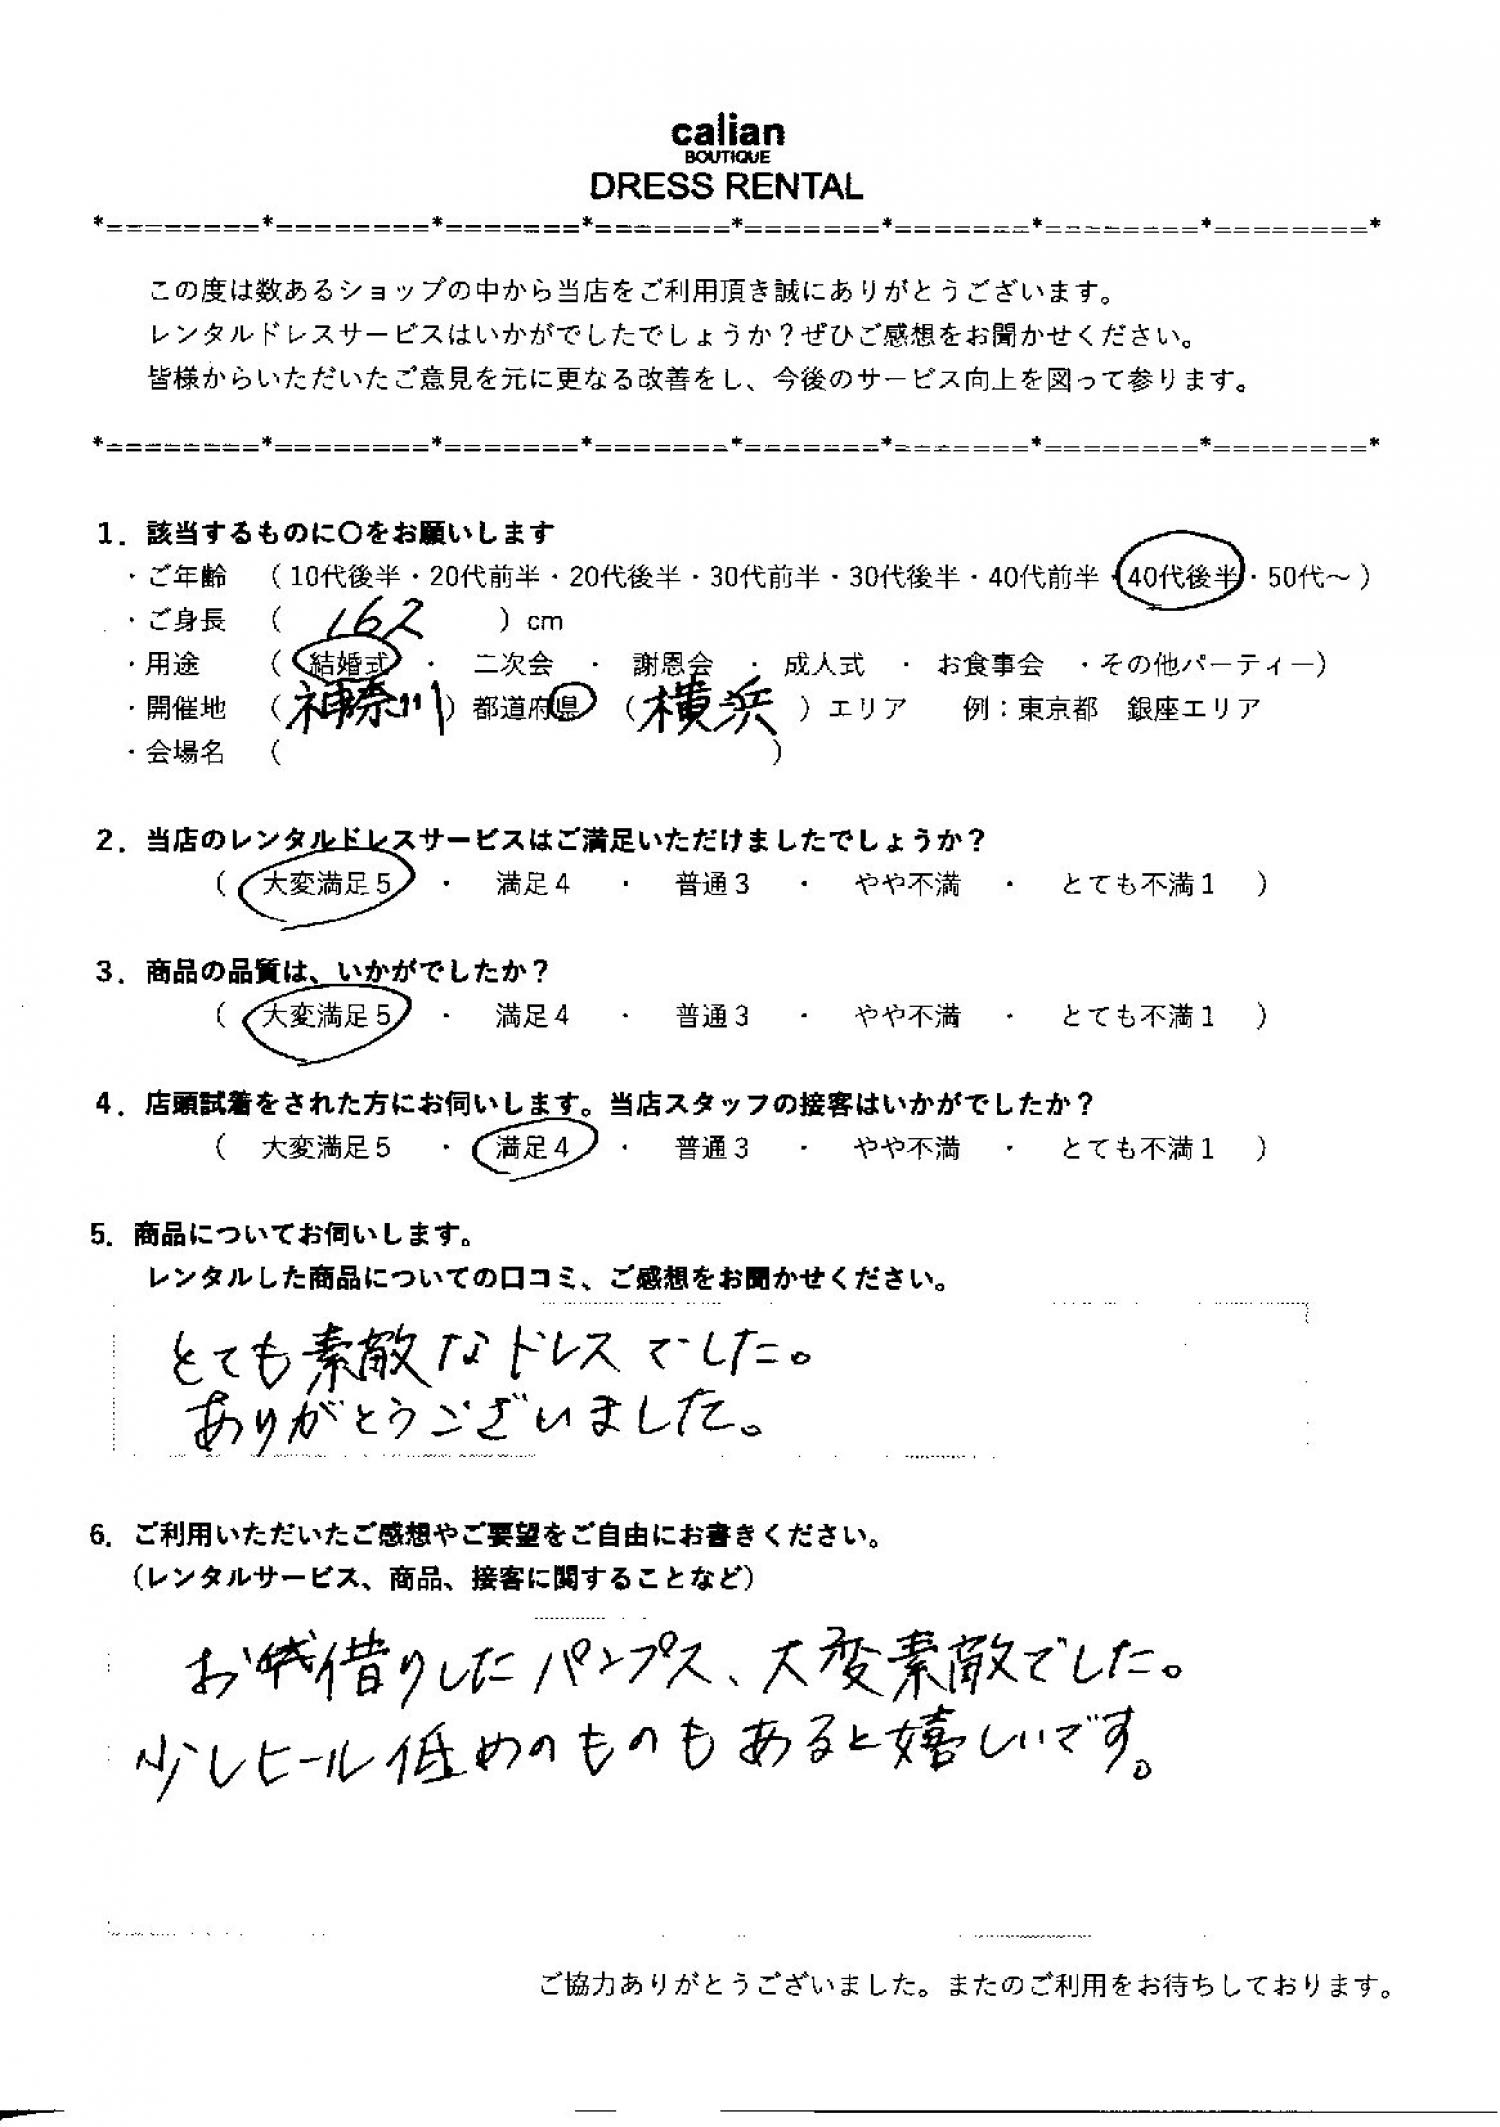 calian
BOUTIQUE
DRESS RENTAL
*========*========*=======*=======*=======*=======*========*========*
この度は数あるショップの中から当店をご利用頂き誠にありがとうございます。
レンタルドレスサービスはいかがでしたでしょうか？ぜひご感想をお聞かせください。
皆様からいただいたご意見を元に更なる改善をし、今後のサービス向上を図って参ります。
*========*========*=======*=======*=======*=======*========*========*
1．該当するものに〇をお願いします
・ご年齢 （10代後半・20代前半・20代後半・30代前半・30代後半・40代前半・40代後半・50代～）
・ご身長 （ 162 ）cm
・用途 （ 結婚式 ・ 二次会 ・ 謝恩会 ・ 成人式 ・ お食事会 ・その他パーティー）
・開催地 （神奈川）都道府県 （横浜 ）エリア 例：東京都 銀座エリア
・会場名 （ ）
2．当店のレンタルドレスサービスはご満足いただけましたでしょうか？
（ 大変満足5 ・ 満足4 ・ 普通3 ・ やや不満 ・ とても不満1 ）
3．商品の品質は、いかがでしたか？
（ 大変満足5 ・ 満足4 ・ 普通3 ・ やや不満 ・ とても不満1 ）
4．店頭試着をされた方にお伺いします。当店スタッフの接客はいかがでしたか？
（ 大変満足5 ・ 満足4 ・ 普通3 ・ やや不満 ・ とても不満1 ）
5．商品についてお伺いします。
レンタルした商品についての口コミ、ご感想をお聞かせください。
とても素敵なドレスでした。
ありがとうございました。
6．ご利用いただいたご感想やご要望をご自由にお書きください。
（レンタルサービス、商品、接客に関することなど）
お借りしたパンプス、大変素敵でした。
少しヒール低めのものもあると嬉しいです。
ご協力ありがとうございました。またのご利用をお待ちしております。